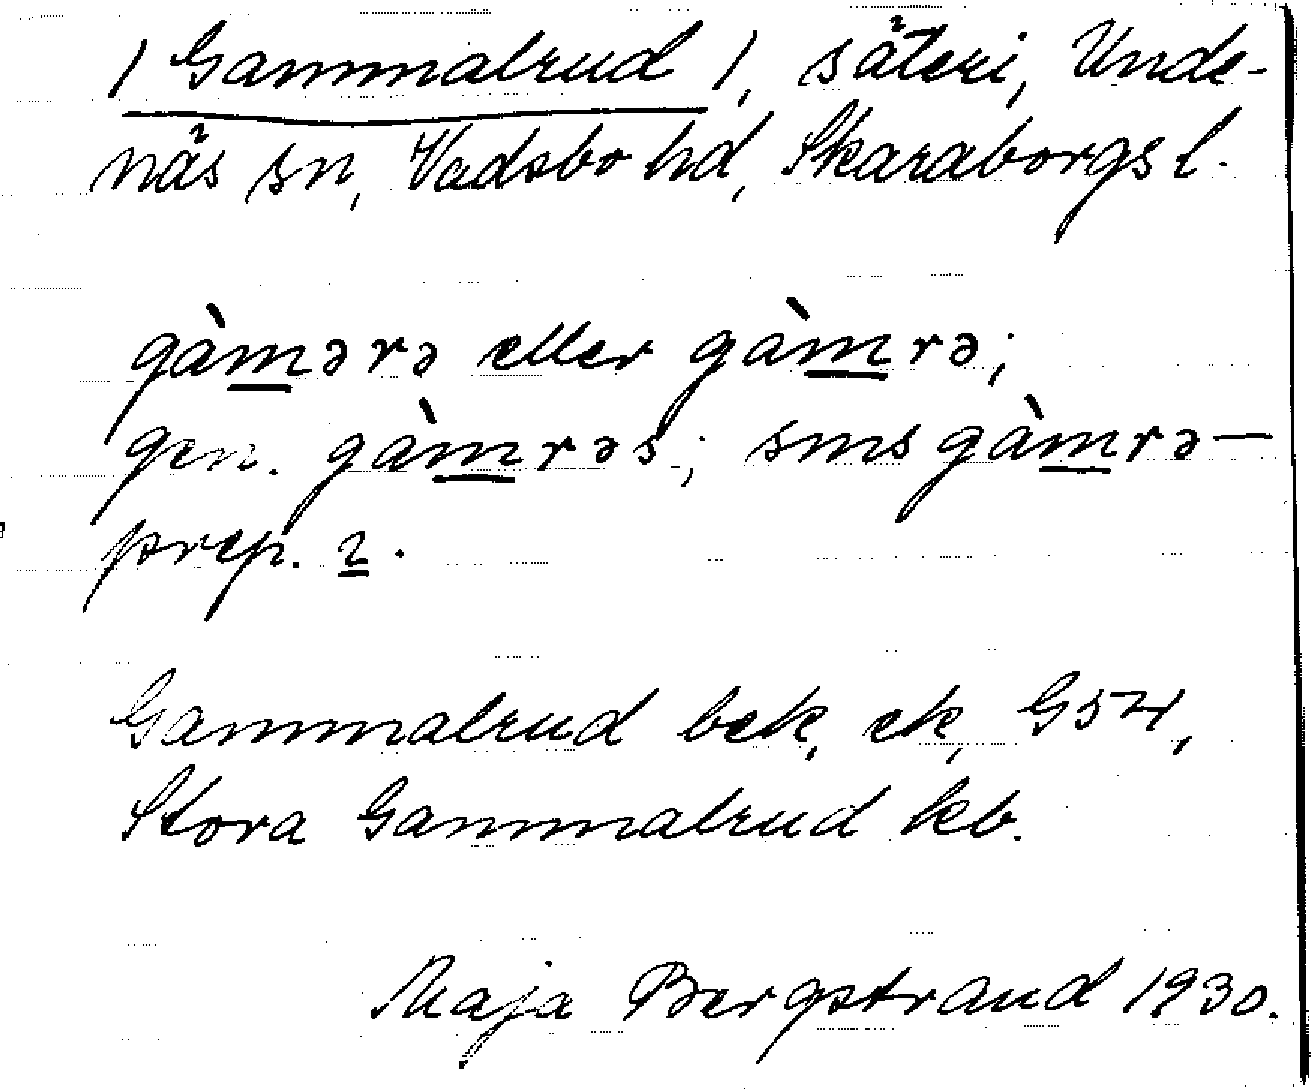 / Gammalrud /, säteri, Unde-
näs sn, Vadsbo hd, Skaraborgs l.
gàmərə eller gàmrə;
gen. gàmrəs; sms gàmrə—
prep. ɩ.
Gammalrud bek, ek, G54,
Stora Gammalrud kb.
Maja Bergstrand 1930.